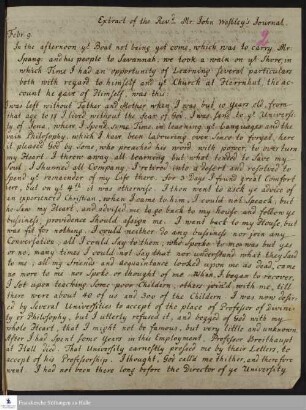 Extract of the Revd. Mr. John Westley's Journal.
Febr. 9.
In the afternoon ye Boat not being yet come, which was to carry Mr.
Spang: and his people to Savannah, we took a walk on ye Shore, in
which Time I had an opportunity of Learning several particulars
both with regard to himself and ye Church at Herrnhut, the ac-
count he gave of Himself, was this:
I was left without Father and Mother when I was but 10 Years old. From
that age to 18 I lived without the fear of God. I was sent to ye Universi-
ty of Jena, where I spent some Time in Learning ye Languages and the
vain Philosophy, which I have been Labouring ever since to forget, here
it pleased God by Some, who preached his word with power, to overturn
my Heart. I threw away all Learning but what tended to Save my
Soul, I shunned all Company, I retired into a desart and resolved to
spend ye remainder of my Life there, for 3 Days I found great Comfort
here, but on ye 4th it was otherwise. I then went to ask ye advice of
an experienced Christian, when I came to him, I could not Speak, but
he saw my Heart, and advised me to go back to my house and follow ye
business, providence should assign me. I went back to my House, but
was fit for nothing. I could neither do any business nor join any
Conversation, all I could say to them, who spoke to me was but yes
or no, many times I could not say that nor understand what they said
to me, all my friends and acquaintance looked upon me as dead, came
no more to me nor spoke or thought of me. When I began to recover,
I set upon teaching Some poor Children, others joined with me, till
there were about 40 of us and 80 of the Children. I was now desir'd
by several Universities to accept of the place of Professor of Divini-
ty or Philosophy, but I utterly refused it, and begged of God with my
whole Heart, that I might not be famous, but very little and unknown.
After I had spent some Years in this Employment, Professor Breithaupt
at Hall died. That University earnestly pressed me by their Letters, to
accept of his Professorship. I thought, God called me thither, and therefore
went. I had not been there long before the Director of ye University
Franckesche Stiftungen zu Halle